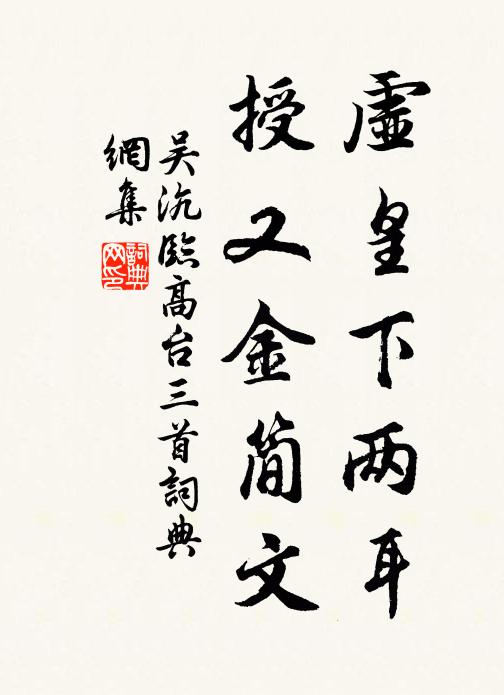 虚皇下两耳
授又金简文
吴沆臨高台三首詞典
網集
詞典网印